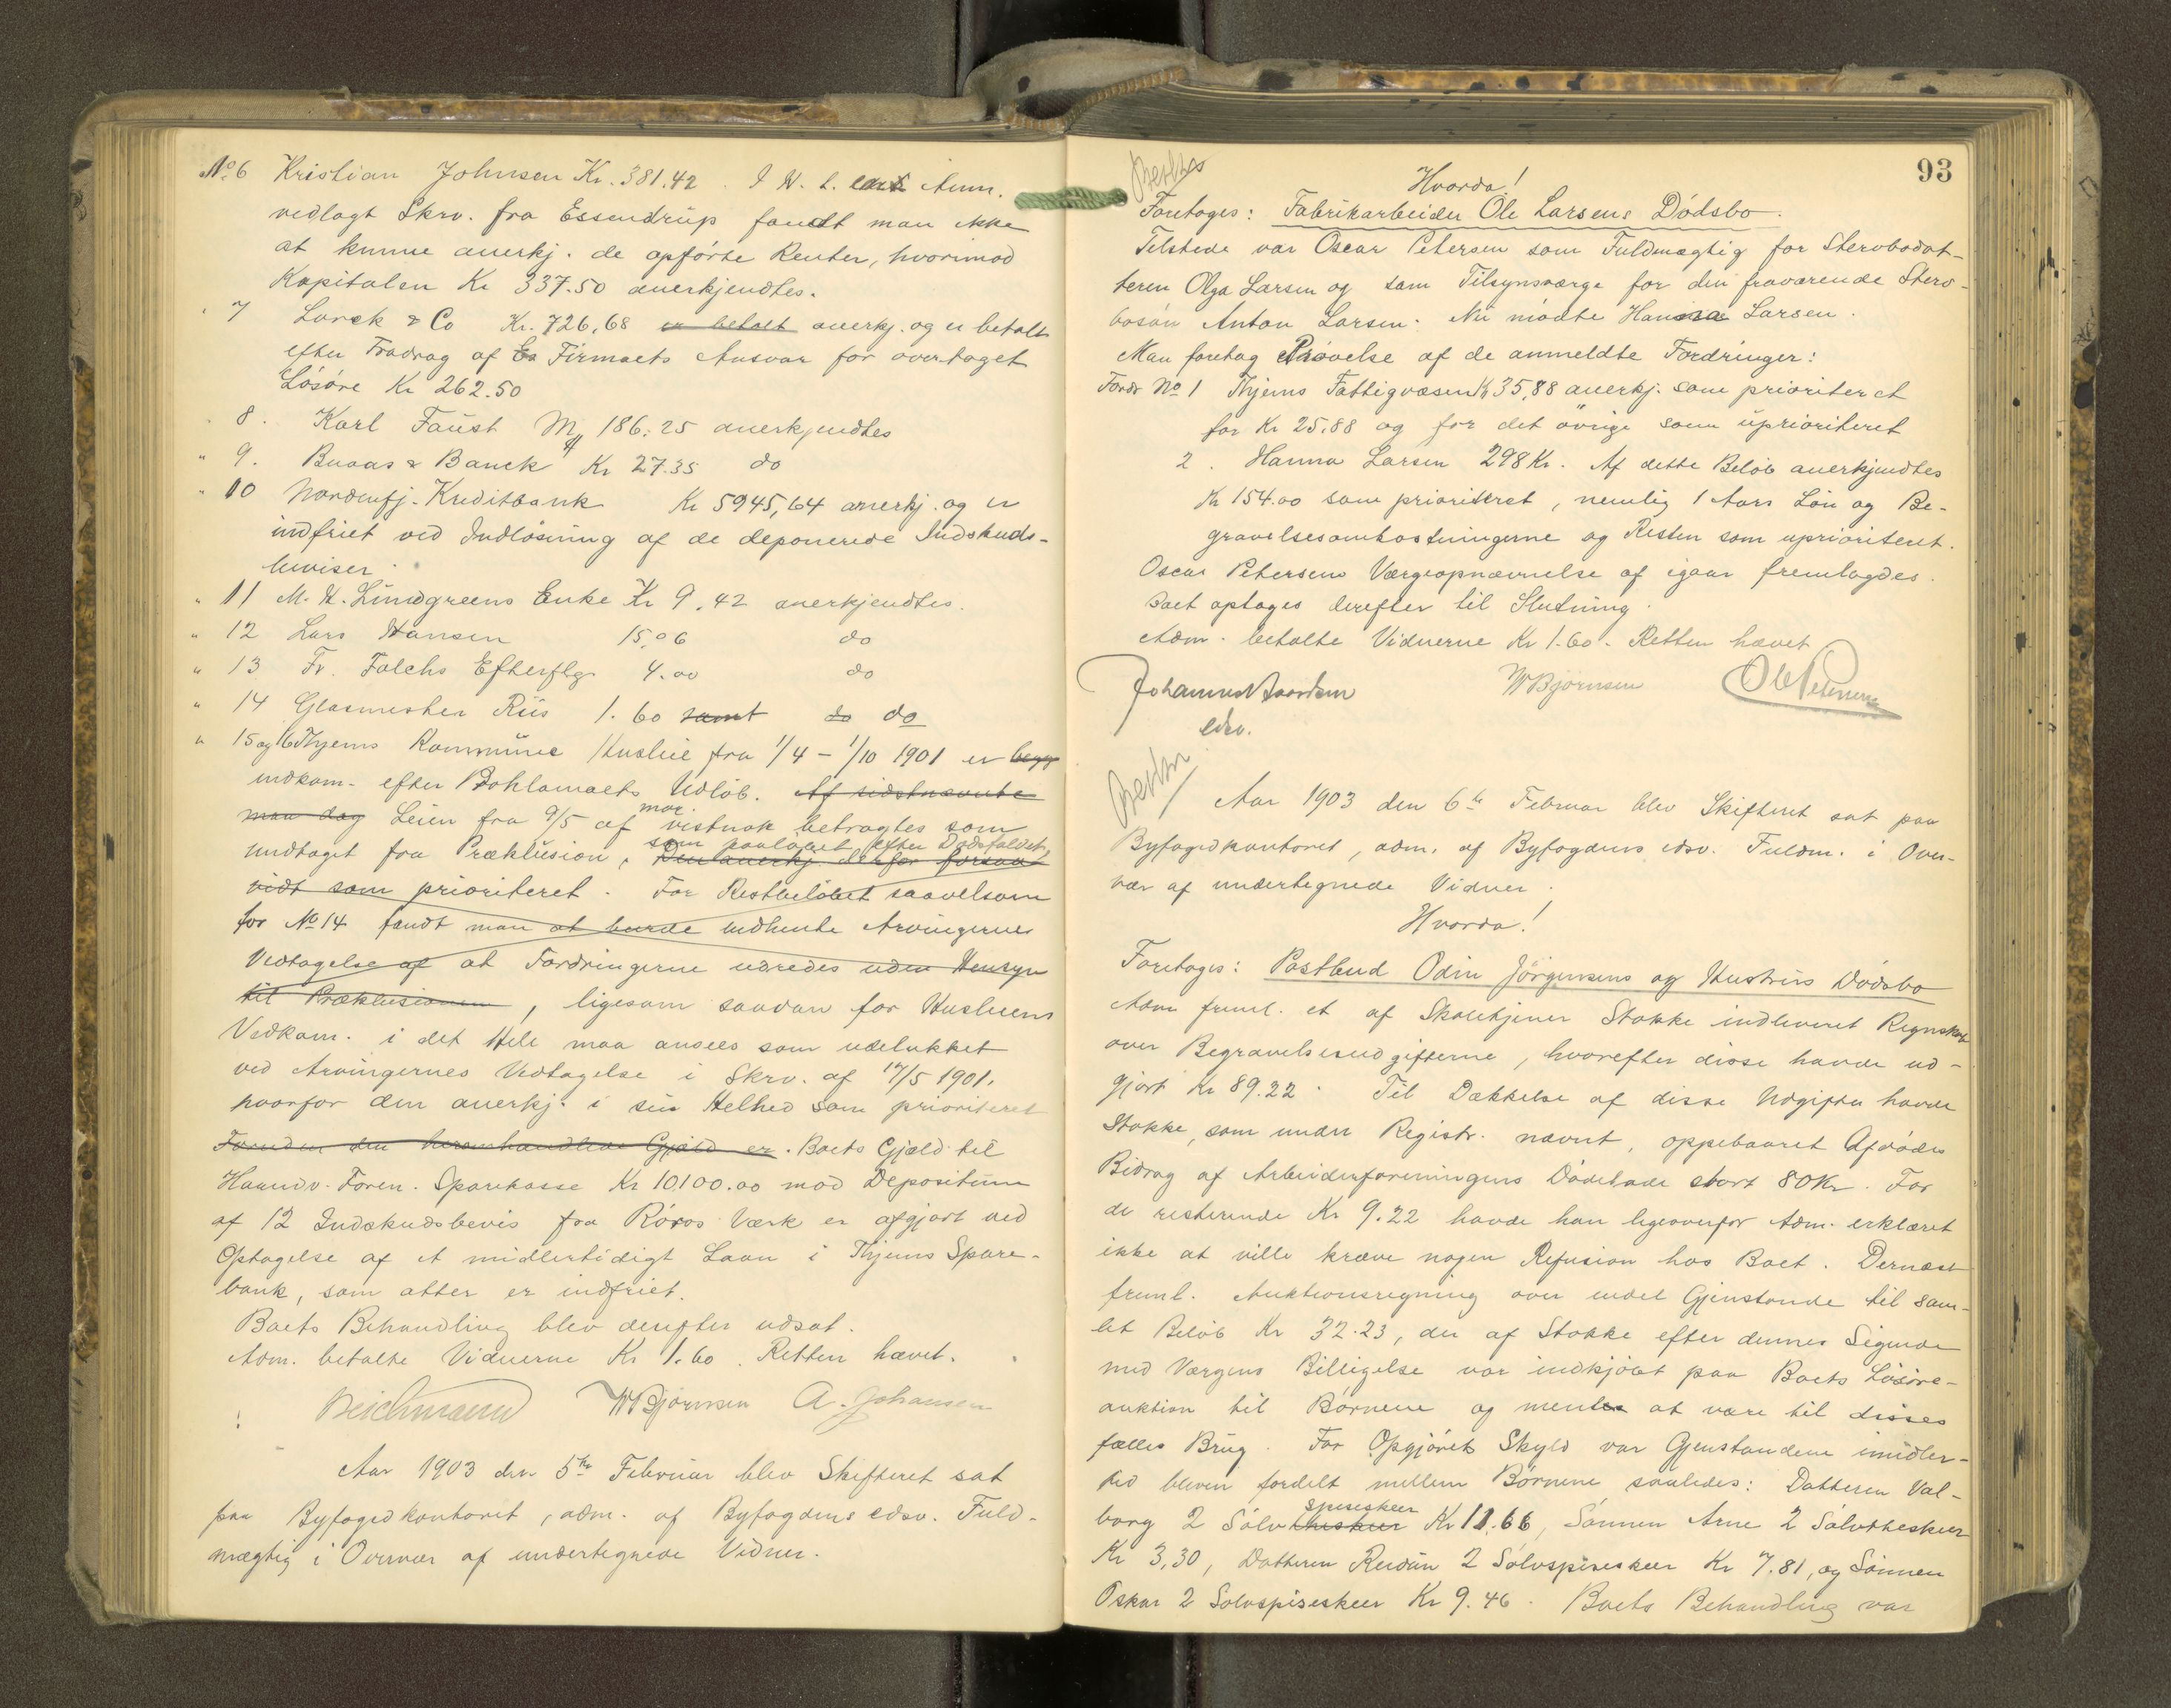 No 6 Kristian Johnsen Kr. 381.42. I H. t. Anm.
vedlagt Skrv. fra Essendrup fandt man ikke
at kunne anerkj. de opførte Renter, hvorimod
Kapitalen Kr 337.50 anerkjendtes.
" 7 Lorck & Co Kr. 726,68 er betalt anerkj. og er betalt
efter Fradrag af Firmaets Ansvar for overtaget
Løsøre Kr 262.50
" 8. Karl Faust M 186.25 anerkjendtes
" 9. Buaas & Banck Kr 27.35 do
" 10 Nordenfj. Kreditbank Kr 5945,64 anerkj. og er
indfriet ved Indløsning af de deponerede Indskuds-
beviser.
" 11 M. H. Lundgreens Enke Kr 9.42 anerkjendtes.
" 12 Lars Hansen 15.06 do
" 13 Fr. Falchs Efterflg. 4.00 do
" 14 Glasmester Riis 1.60 samt do do
" 15 og 16 Thjems Kommune Husleie fra 1/4 - 1/10 1901 er begge
indkom. efter Proklamaets Udløb. Af sidstnævnte
maa dog Leien fra 9/5 af maa vistnok betragtes som
undtaget fra Præklusion, som paaløbet efter Dødsfaldet, Den anerkj. derfor forsaa-
vidt som prioriteret. For Restbeløbet saavelsom
for No 14 fandt man at burde indhente Arvingernes
Vedtagelse af at Fordringerne udredes uden Hensyn
til Præklusionen, ligesom saadan for Husleiens
Vedkom. i det Hele maa ansees som udelukket
ved Arvingernes Vedtagelse i Skrv. af 17/5 1901,
hvorfor den anerkj. i sin Helhed som prioriteret
Foruden den heromhandlede Gjæld er. Boets Gjæld til
Haandv. Foren. Sparekasse Kr 10100.00 mod Depositum
af 12 Indskudsbevis fra Røros Værk er afgjort ved
Optagelse af et midlertidigt Laan i Thjems Spare-
bank, som atter er indfriet.
Boets Behandling blev derefter udsat.
Adm. betalte Vidnerne Kr 1.60. Retten hævet.
Beichmann W Bjørnsen A. Johansen
Aar 1903 den 5te Februar blev Skifteret sat
paa Byfogedkontoret, adm. af Byfogdens edsv. Fuld-
mægtig i Overvær af undertegnede Vidner.
93
Hvorda!
Foretoges: Fabrikarbeider Ole Larsens Dødsbo.
Tilstede var Oscar Petersen som Fuldmægtig for Stervbodat-
teren Olga Larsen og som Tilsynsværge for den fraværende Sterv-
bosøn Anton Larsen. Nu mødte Hanna Larsen.
Man foretog Prøvelse af de anmeldte Fordringer:
Fordr No 1 Thjems Fattigvæsen Kr 35,88 anerkj. som prioriteret
for Kr 25.88 og for det øvrige som uprioriteret
2. Hanna Larsen 298 Kr. Af dette Beløb anerkjendtes
Kr 154.00 som prioriteret, nemlig 1 Aars Løn og Be-
gravelsesomkostningerne og Resten som uprioriteret.
Oscar Petersens Værgeopnævnelse af igaar fremlagdes.
Boet optoges derefter til Slutning.
Adm. betalte Vidnerne Kr 1.60. Retten hævet
W Bjørnsen
edsv.
Aar 1903 den 6te Februar blev Skifteret sat paa
Byfogedkontoret, adm. af Byfogdens edsv. Fuldm. i Over-
vær af undertegnede Vidner.
Hvorda!
Foretoges: Postbud Odin Jørgensens og Hustrus Dødsbo
Adm freml. et af Skoletjener Stokke indleveret Regnskab
over Begravelsesudgifterne, hvorefter disse havde ud-
gjort Kr 89.22. Til Dækkelse af disse Udgifter havde
Stokke, som under Registr. nævnt, oppebaaret Afdødes
Bidrag af Arbeiderforeningens Dødelade stort 80 Kr. For
de resterende Kr 9.22 havde han ligeoverfor Adm. erklæret
ikke at ville kræve nogen Refusion hos Boet. Dernæst
freml. Auktionsregning over endel Gjenstande til sam-
let Beløb Kr 32.23, der af Stokke efter dennes Sigende
med Værgens Billigelse var indkjøbt paa Boets Løsøre-
auktion til Børnene og mentes at være til disses
fælles Brug. For Opgjørets Skyld var Gjenstandene imidler-
tid bleven fordelt mellem Børnene saaledes: Datteren Val-
borg 2 Sølvtheskeer spiseskeer Kr 11.66, Sønnen Arne 2 Sølvtheskeer
Kr 3,30, Datteren Reidun 2 Sølvspiseskeer Kr 7.81, og Sønnen
Oskar 2 Sølvspiseskeer Kr 9.46. Boets Behandling var